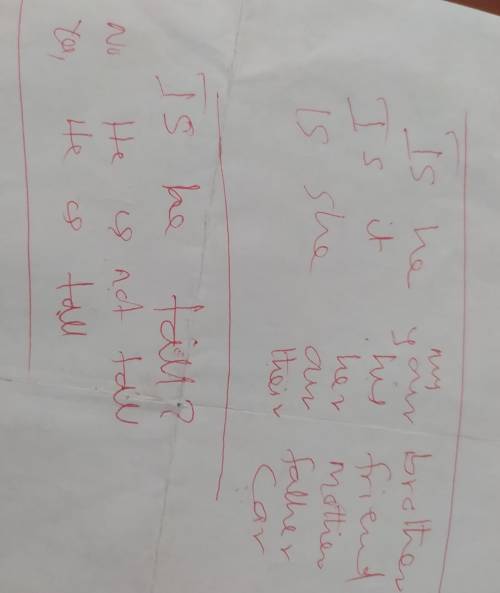 my
Is he your brother
Is it his friend
her mother
Is she our father
their car
Is he tall?
No He is not tall
Yes, He is tall